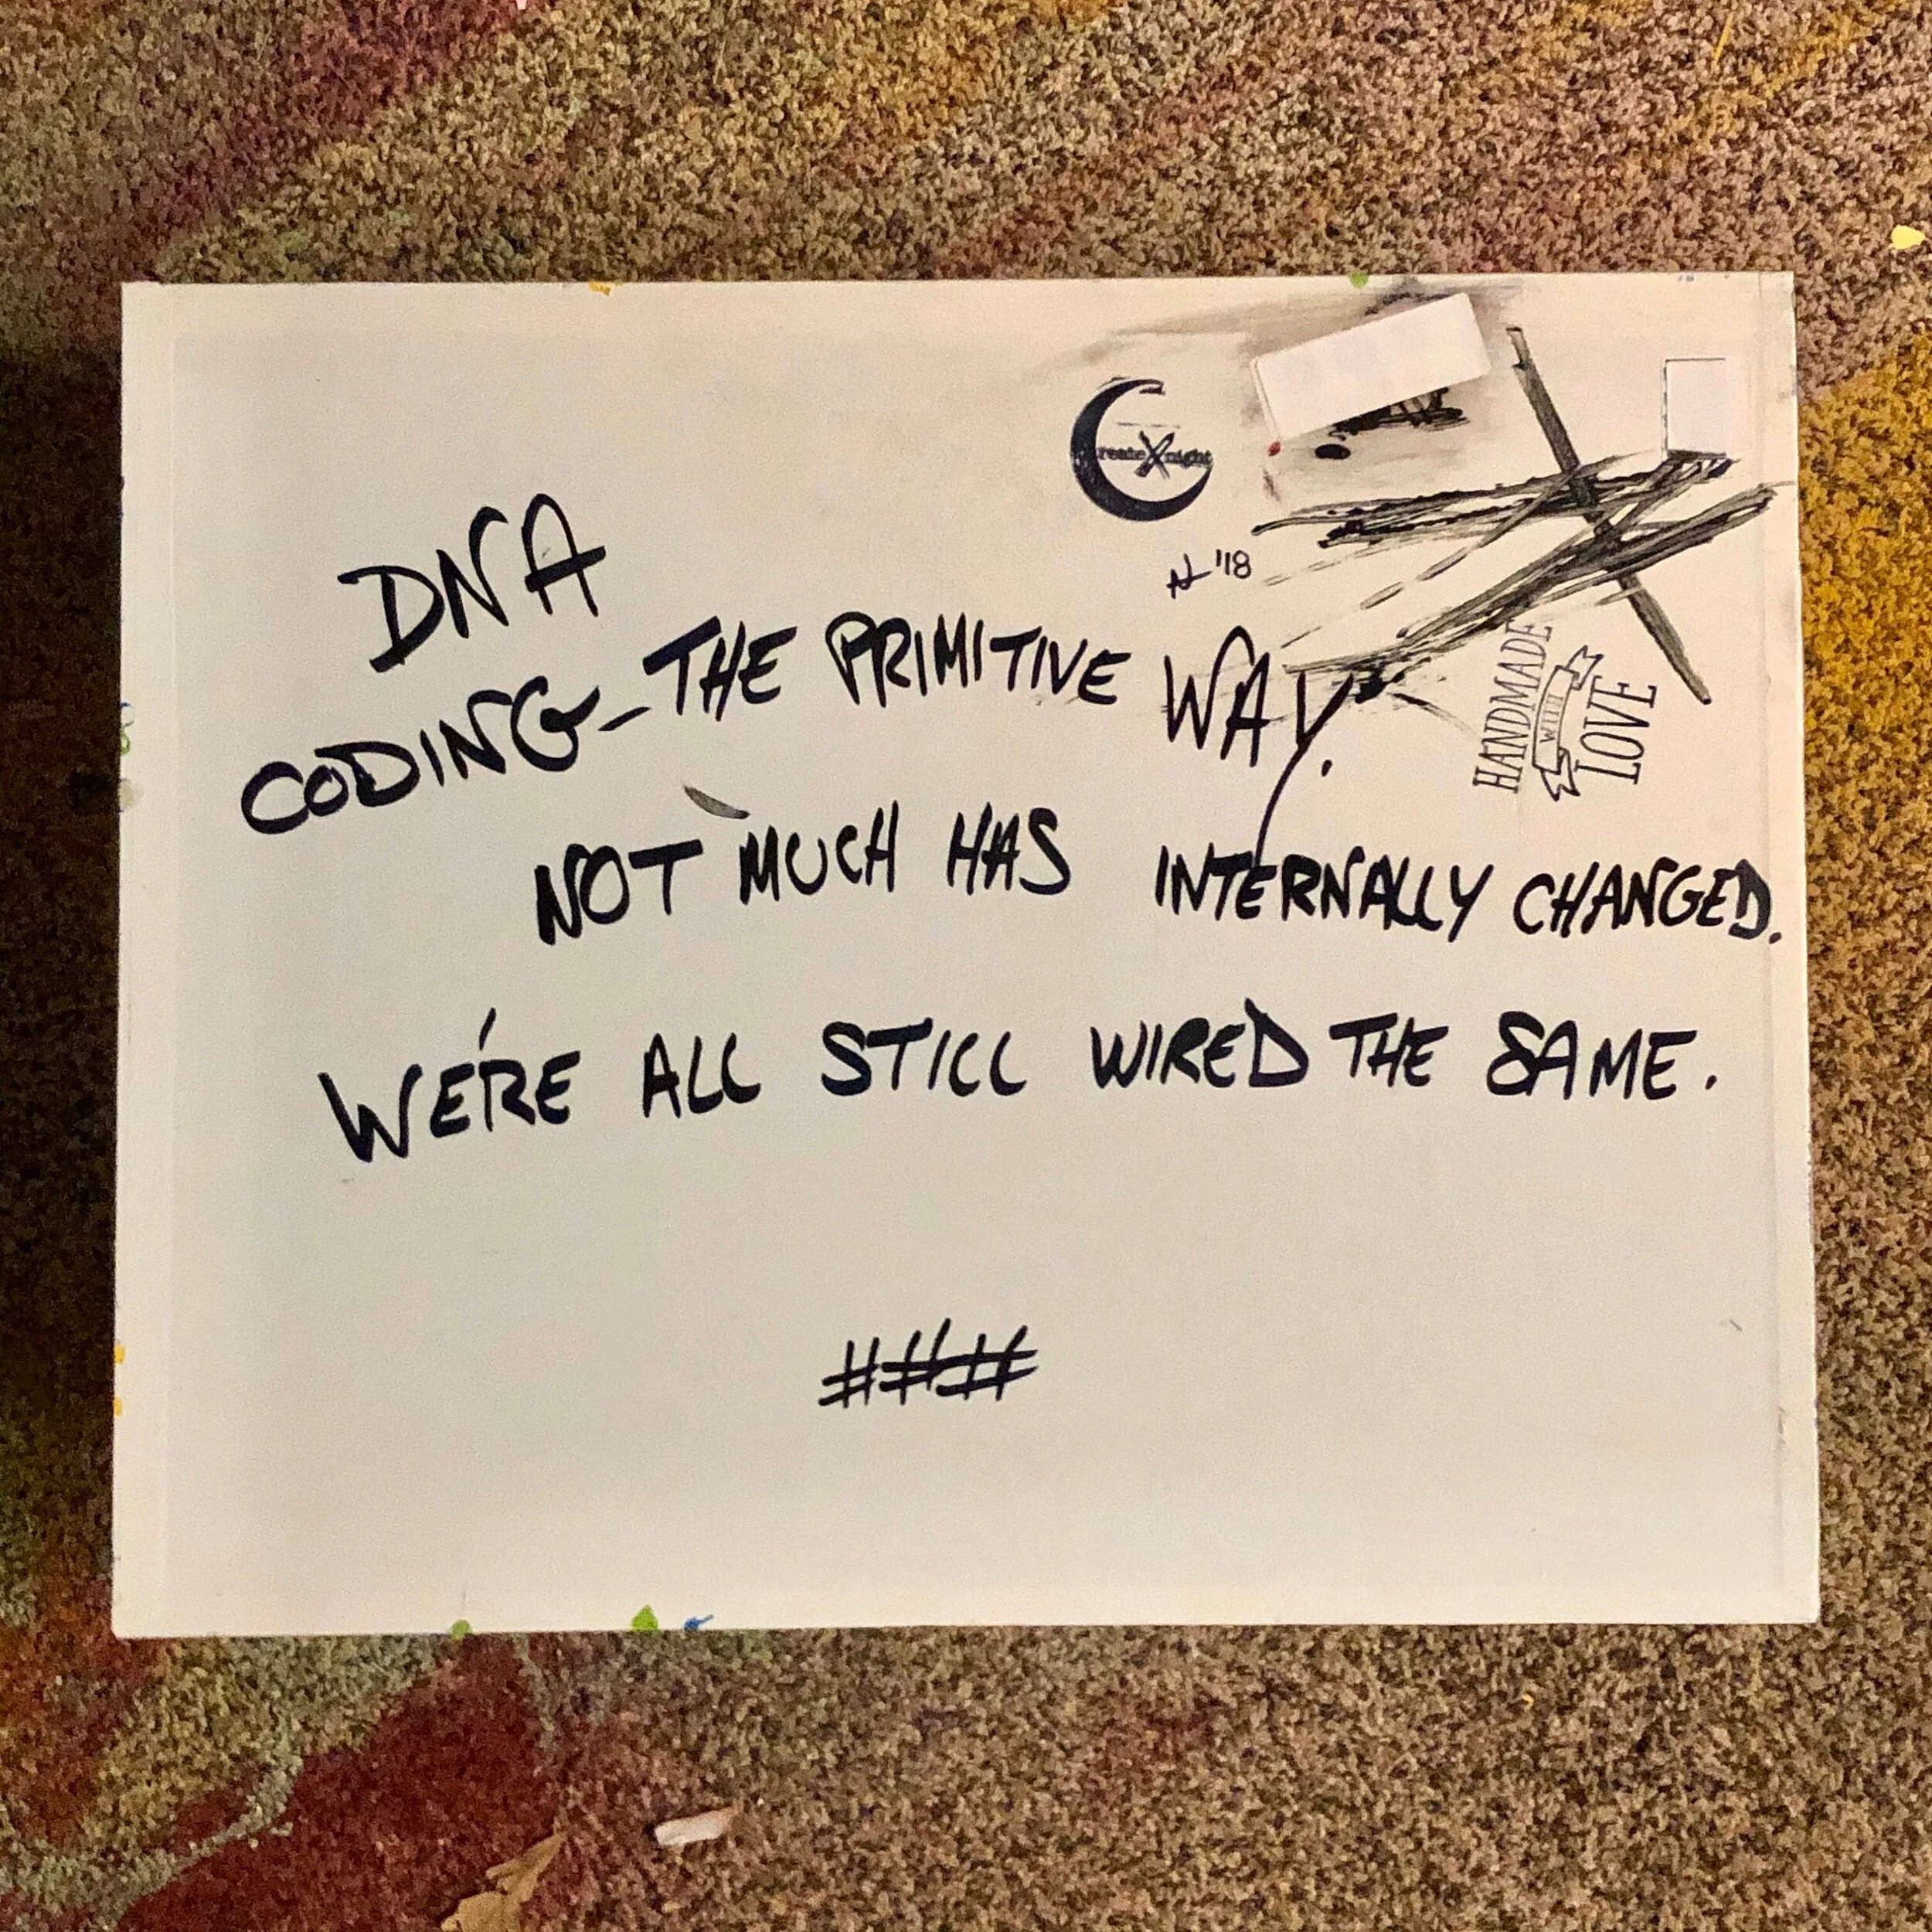 CreateXnight
'18
DNA
CODING-THE PRIMITIVE WAY.
HANDMADE
WITH
LOVE
NOT MUCH HAS INTERNALLY CHANGED.
WE'RE ALL STILL WIRED THE SAME.
###